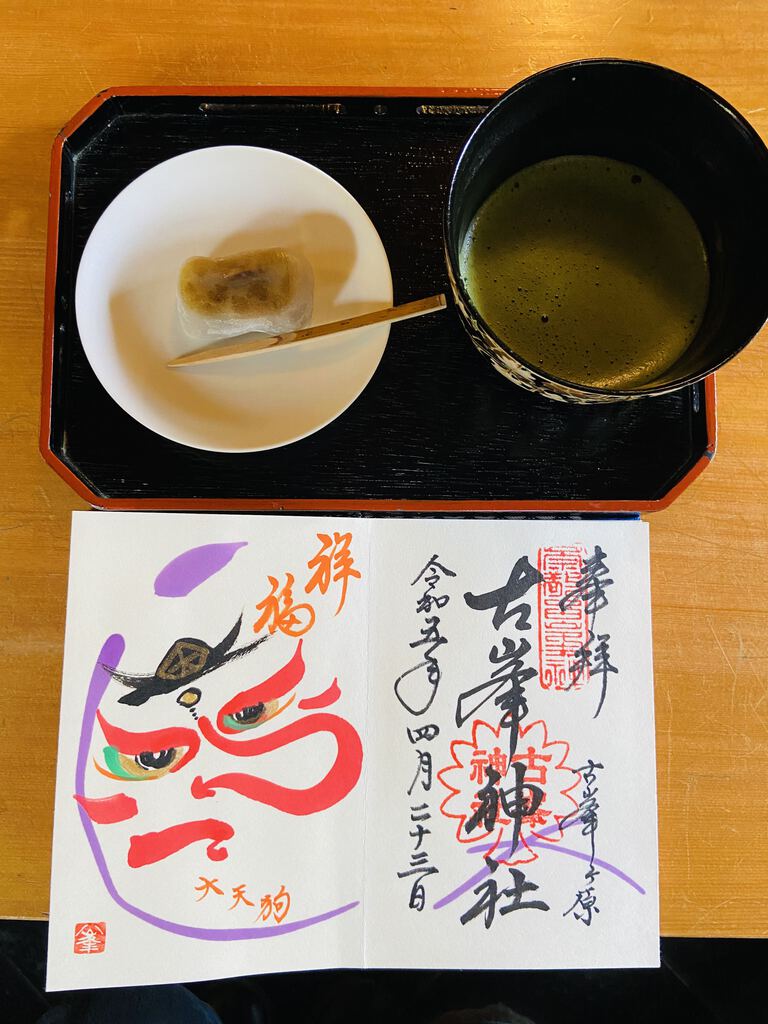 奉拝
古峯ヶ原
古峯神社
令和五年四月二十三日
祥福
大天狗
峯